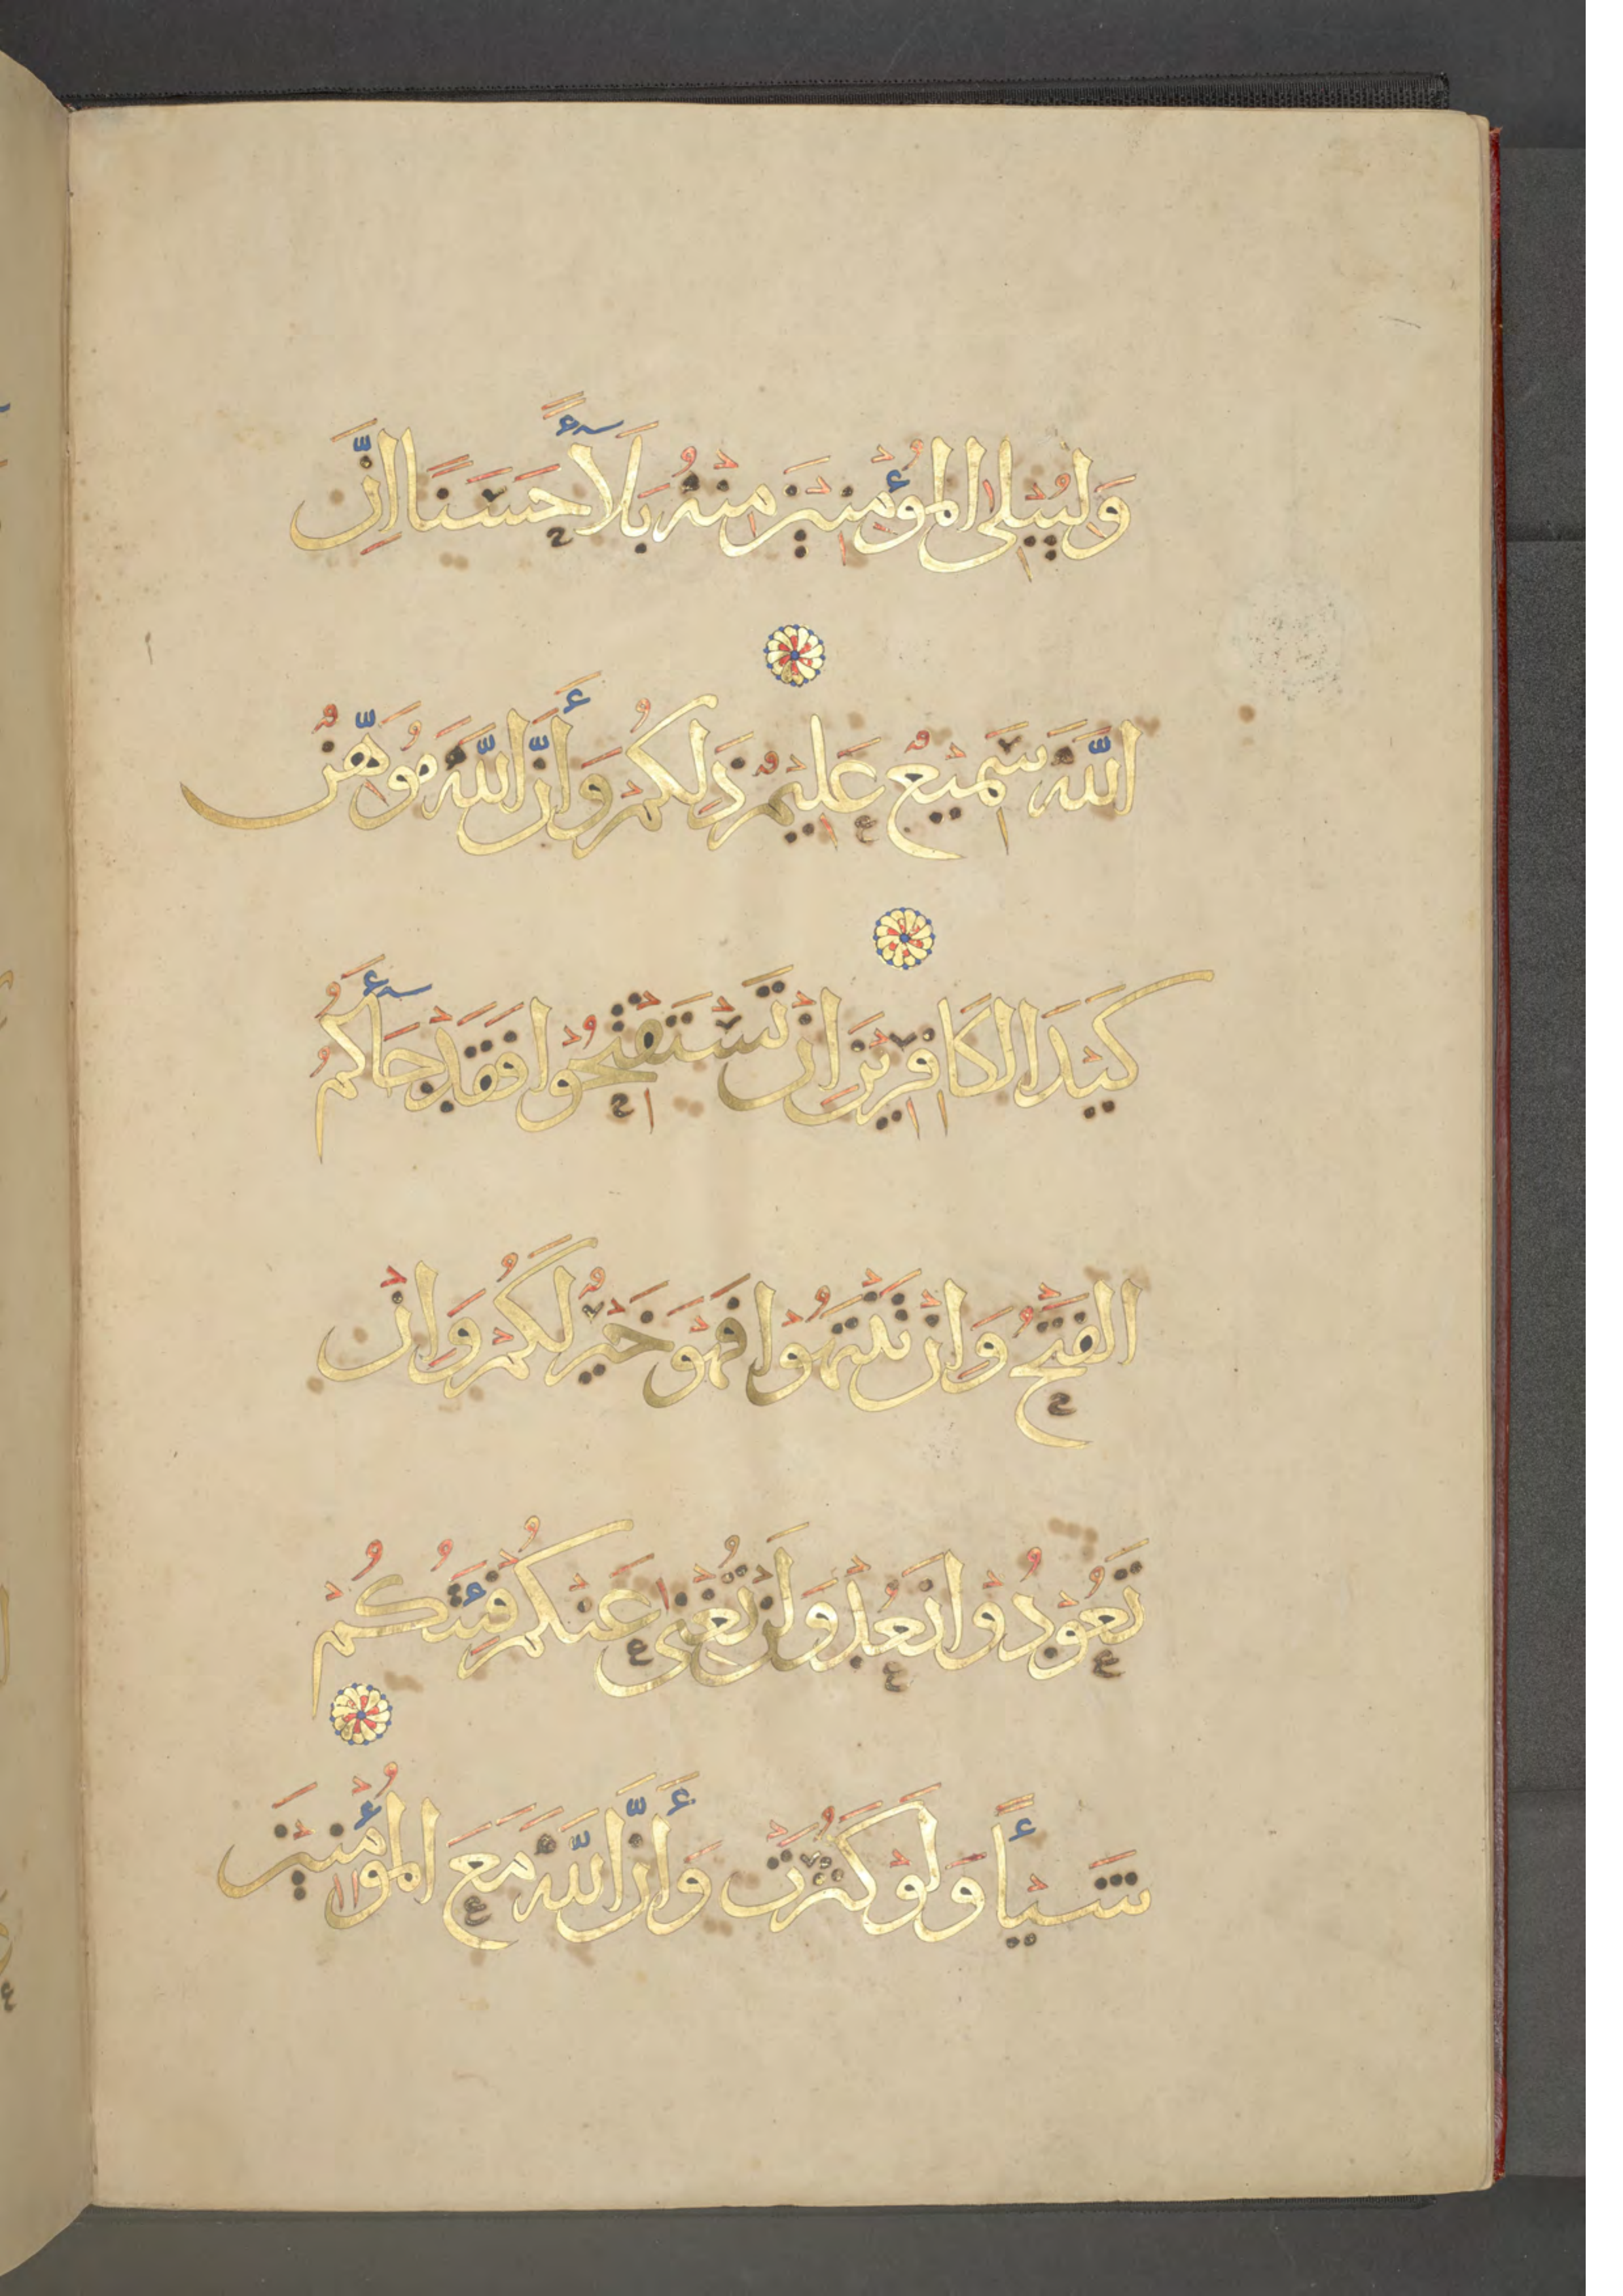 وَلِيُبْلِىَ المُؤْمِنِينَ مِنْهُ بَلَآءً حَسَنًا اِنَّ
اللَّهَ سَمِيعٌ عَلِيمٌ ذَلِكُمْ وَأَنَّ اللَّهَ مُوَهِّنٌ
كَيْدَ الكَافِرِينَ اِنْ تَسْتَفْتِحُوا فَقَدْ جَآءَكُمُ
الفَتْحُ وَاِنْ تَنْتَهُوْا فَهْوَ خَيْرٌ لَكُمْ وَاِنْ
تَعُوْدُوْا نَعُدْ وَلَنْ تُغْنِىَ عَنْكُمْ فِئَتُكُمْ
شَيْأً وَلَوْ كَثُرَتْ وَأَنَّ اللَّهَ مَعَ المُؤْمِنِينَ